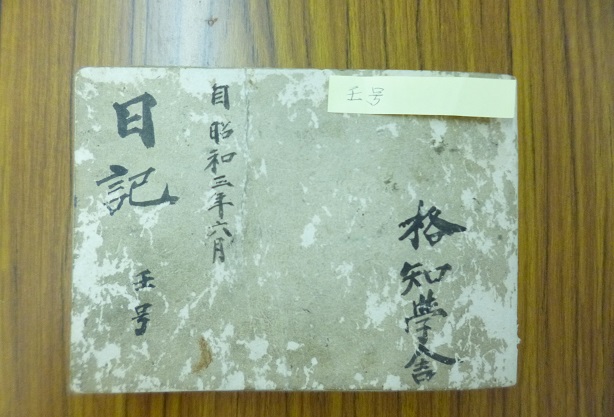 壬号
格知學舎
自昭和三年六月
日記
壬号